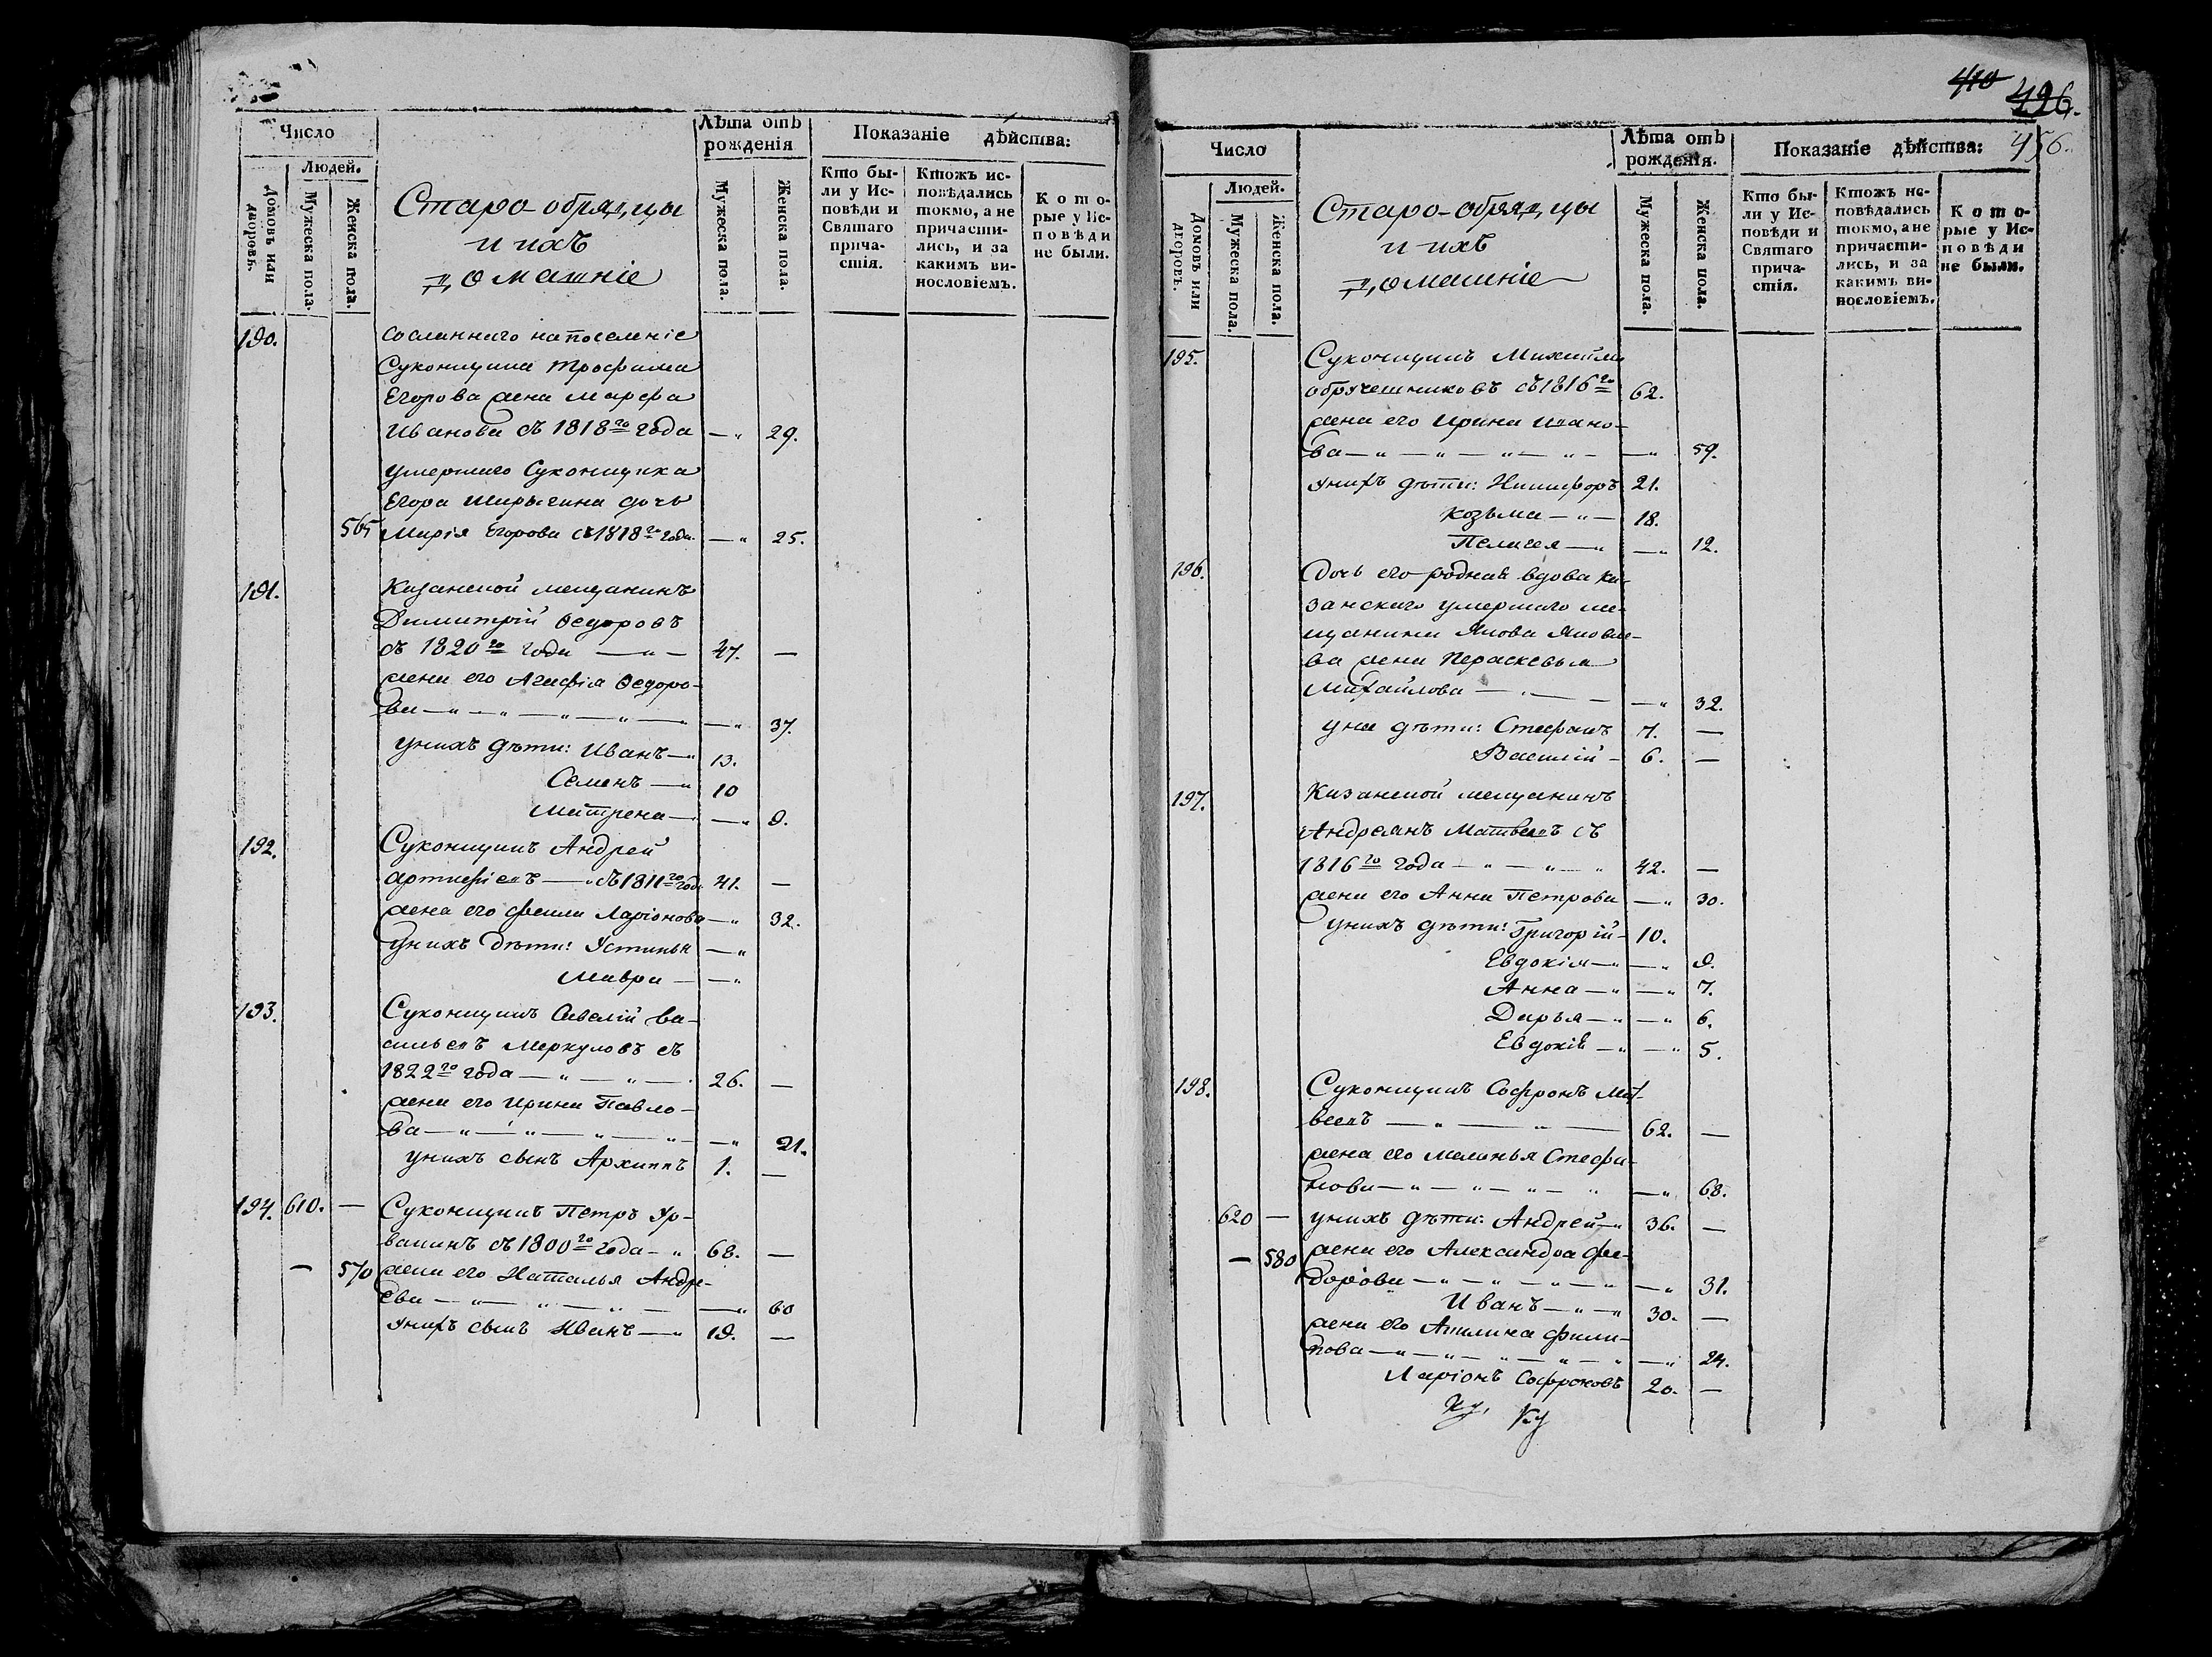 Число
Людей.
Домовъ или дворовъ.
Мужеска пола.
Женска пола.
Старо-обрядцы
и ихъ
домашніе
Лѣта отъ
рожденія
Мужеска пола.
Женска пола.
Показаніе дѣйства:
Кто бы-
ли у Ис-
повѣди и
Святаго
прича-
стія.
Ктожъ ис-
повѣдались
токмо, а не
причасти-
лись, и за
какимъ ви-
нословіемъ.
Кото-
рые у Ис-
повѣди
не были.
190. сосланнаго на поселеніе
Суконщика Трофима
Егорова жена Марфа
Иванова съ 1818го года — " 29.
умершаго Суконщика
Егора Шарыгина дочь
565 Марія Егорова съ 1818го года — " 25.
191. Казанской мещанинъ
Димитрій Ѳедоровъ
съ 1820го года — " — 47. —
жена его Агафія Ѳедоро-
ва — " — " — " — " — " — " 37.
у нихъ дѣти: Иванъ — " 13.
Семенъ — " 10
Матрена — — " 9.
192. Суконщикъ Андрей
Артемьевъ — " съ 1811го года 41. —
жена его Ларіонова — " 32.
у нихъ дѣти: Устинья — "
Мавра — — "
193. Суконщикъ Савелій Ва-
сильевъ Меркуловъ съ
1822го года — " — " — 26. —
жена его Ирина Павло-
ва — " — " — " — " — — " 21.
у нихъ сынъ Архиппъ 1. —
194. 610. — Суконщикъ Петръ Ур-
ванинъ съ 1800го года — " 68. —
— 570 жена его Наталья Андре-
ева — " — " — " — — " 60
у нихъ сынъ Иванъ — " 19. —
410
426.
456.
Число
Людей.
Домовъ или дворовъ.
Мужеска пола.
Женска пола.
Старо-обрядцы
и ихъ
домашніе
Лѣта отъ
рожденія.
Мужеска пола.
Женска пола.
Показаніе дѣйства:
Кто бы-
ли у Ис-
повѣди и
Святаго
прича-
стія.
Ктожъ ис-
повѣдались
токмо, а не
причасти-
лись, и за
какимъ ви-
нословіемъ.
Кото-
рые у Ис-
повѣди
не были.
195. Суконщикъ Михайла
Обручешниковъ съ 1816го 62.
жена его Ирина Ивано-
ва — " — " — " — " — — " 59.
у нихъ дѣти: Никифоръ 21.
Козьма — " — 18.
Пелагея — " — " 12.
196. Дочь его родная вдова ка-
занскаго умершаго ме-
щанина Якова Яковле-
ва жена Параскевья
Михайлова — " — — — " 32.
у нея дѣти: Стефанъ 7. —
Василій — 6. —
197. Казанской мещанинъ
Андреянъ Матвеевъ съ
1816го года — " — " — " 42. —
жена его Анна Петрова — " 30.
у нихъ дѣти: Григорій — 10.
Евдокія — " — " 9.
Анна — " — " 7.
Дарья — " — " 6.
Евдокія — " — " 5.
198. Суконщикъ Софронъ Мат-
веевъ — " — " — 62. —
жена его Меланья Стефа-
нова — " — " — " — " — " 68.
620 — у нихъ дѣти: Андрей — " 36. —
— 580 жена его Александра Фе-
дорова — " — " — " — " — " 31.
Иванъ — " — " 30. —
жена его Акилина Фили-
пова — " — " — " — " — " — " 24.
Ларіонъ Софроновъ 20. —
Ку